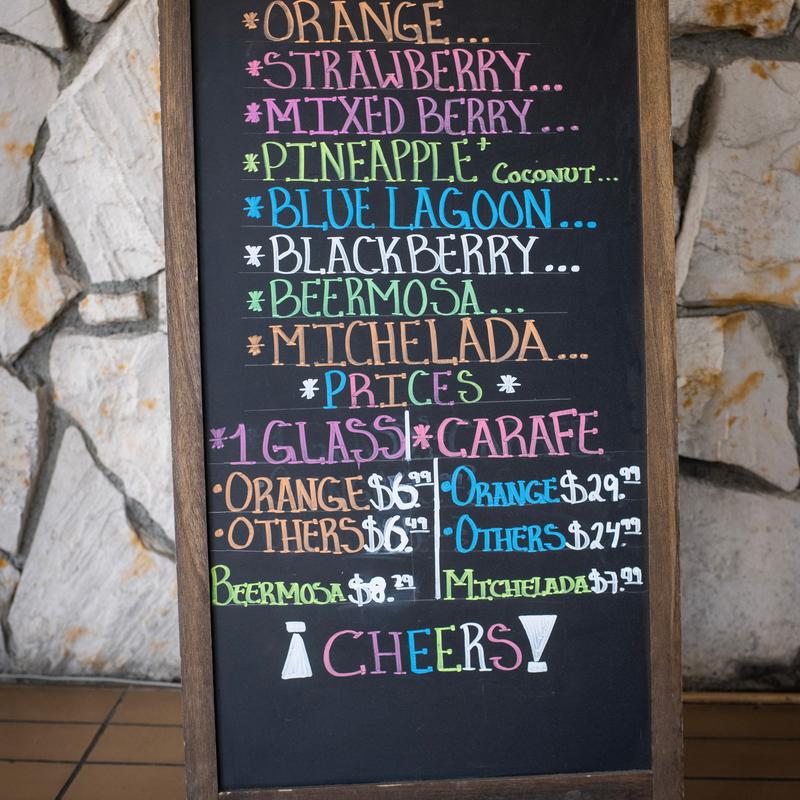 *ORANGE...
*STRAWBERRY...
*MIXED BERRY...
*PINEAPPLE+ COCONUT...
*BLUE LAGOON...
*BLACKBERRY...
*BEERMOSA...
*MICHELADA...
*PRICES*
*1 GLASS *CARAFE
•ORANGE $6.99 •ORANGE $29.99
•OTHERS $6.49 •OTHERS $24.99
BEERMOSA $8.29 MICHELADA $7.99
¡CHEERS!